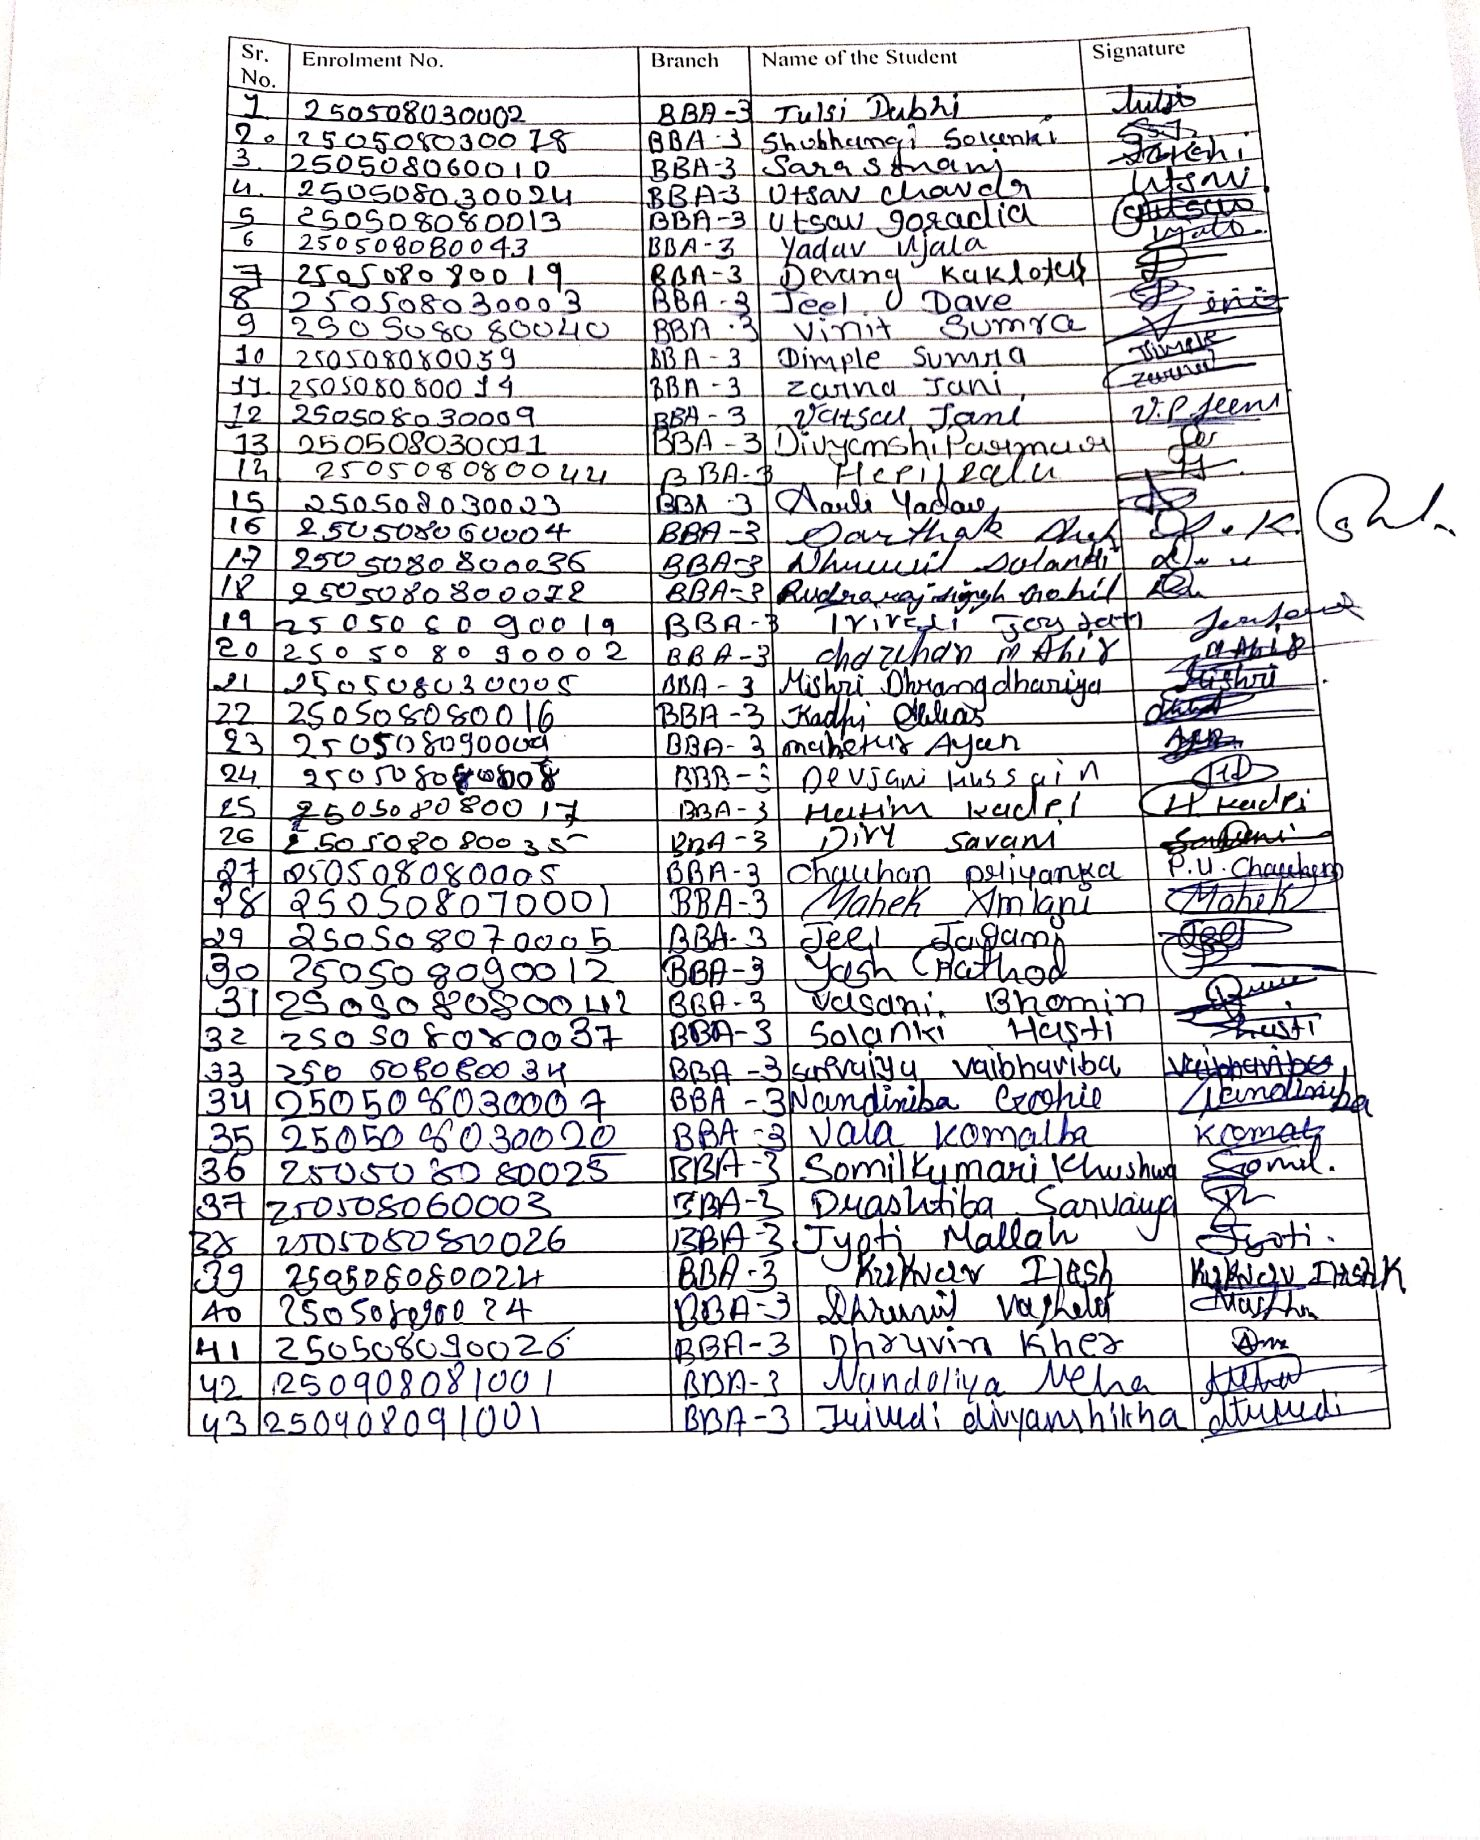 Sr. No. Enrolment No. Branch Name of the Student Signature
1 250508030002 BBA-3 Tulsi Dabhi Tulsi
2. 250508030018 BBA-3 Shubhangi Solanki
3. 250508060010 BBA-3
4. 250508030024 BBA-3 Utsav Chavda Utsav
5 250508080013 BBA-3 Utsav goradia Utsav
6 250508080043 BBA-3 Yadav Ujala Ujala
7 250508080019 BBA-3 Devang
8 250508030003 BBA-3 Jeel Dave
9 250508080040 BBA-3 Vinit Sumra
10 250508080039 BBA-3 Dimple Sumra Dimple
11. 250508080014 BBA-3 Zarna Jani
12 250508030009 BBA-3 Vatsal Jani
13 250508030011 BBA-3 Divyanshi Parmar
14 250508080044 BBA-3
15 250508030023 BBA-3 Yadav
16 250508060004 BBA-3 Sarthak
17 250508080036 BBA-3 Solanki
18 BBA-3 Rudrarajsingh Gohil
19 250508090019 BBA-3
20 250508090002 BBA-3 chauhan mAhir mAhir
21 250508030005 BBA-3 Mishri Dhrangdhariya Mishri
22 250508080016 BBA-3 Kadri Abbas
23 250508090009 BBA-3 Ayan
24 BBA-3 Devjani Hussain
25 250508080017 BBA-3 Hatim Kadri H. Kadri
26 250508080035 BBA-3 Divy Savani
27 250508080005 BBA-3 Chauhan priyanka P.U. Chauhan
28 250508070001 BBA-3 Mahek Amlani Mahek
29 250508070005 BBA-3 Jeel Jagani Jeel
30 250508090012 BBA-3 Yash Rathod
31 250508080042 BBA-3 Vasani. Bhomin
32 250508080037 BBA-3 Solanki Hasti Hasti
33 250508080034 BBA-3 sarvaiya vaibhaviba vaibhaviba
34 250508030007 BBA-3 Nandiniba Gohil Nandiniba
35 250508030020 BBA-3 Vala Komalba Komal
36 250508080025 BBA-3 Somilkumari Khushwa Somil.
37 250508060003 BBA-3 Drashtiba Sarvaiya
38 250508080026 BBA-3 Jyoti Mallah Jyoti.
39 250508080024 BBA-3
40 BBA-3 Vaghela
41 250508090026 BBA-3 Dhruvin Kher
42 250908081001 BBA-3 Nandoliya Neha Neha
43 250908091001 BBA-3 Trivedi divyanshikha